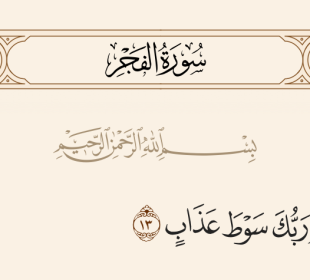 سُورَةُ الفَجْرِ
بِسْمِ اللَّهِ الرَّحْمَٰنِ الرَّحِيمِ
رَبُّكَ سَوْطَ عَذَابٍ ١٣